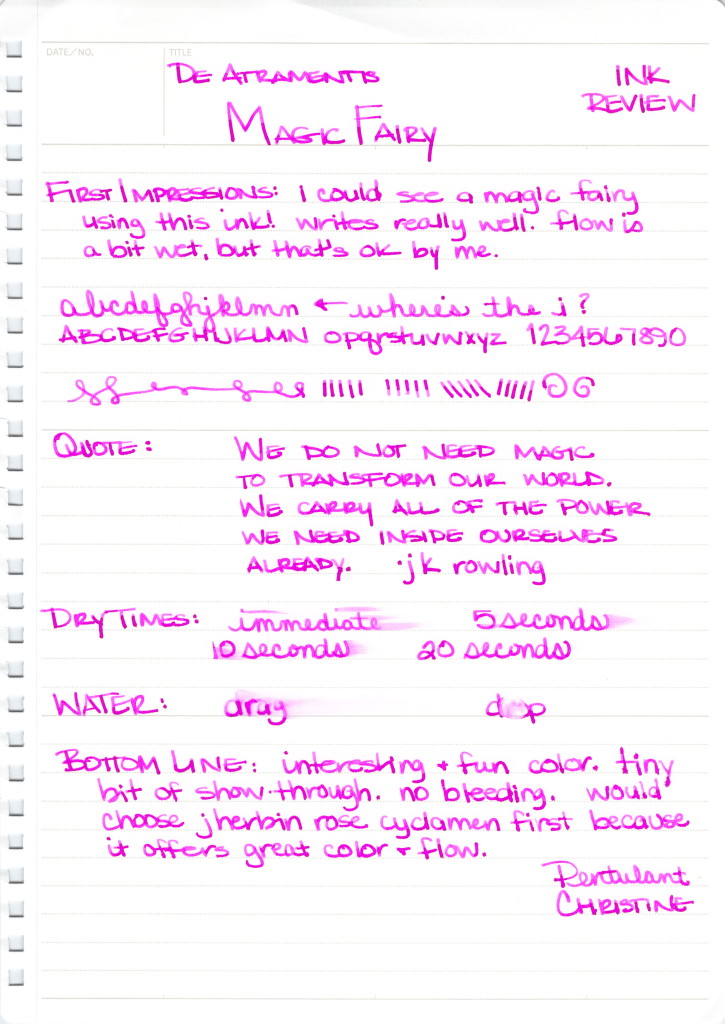 DATE/NO.
TITLE
De Atramentis
Ink
Review
Magic Fairy
First Impressions: i could see a magic fairy
using this ink! writes really well. flow is
a bit wet, but that's ok by me.
abcdefghjklmn ← where's the i?
ABCDEFGHIJKLMN opqrstuvwxyz 1234567890
Quote: We do not need magic
to transform our world.
We carry all of the power
we need inside ourselves
already. -jk rowling
Dry Times: immediate 5 seconds
10 seconds 20 seconds
Water: drag drop
Bottom Line: interesting + fun color. tiny
bit of show-through. no bleeding. would
choose jherbin rose cyclamen first because
it offers great color + flow.
Pentulant
Christine